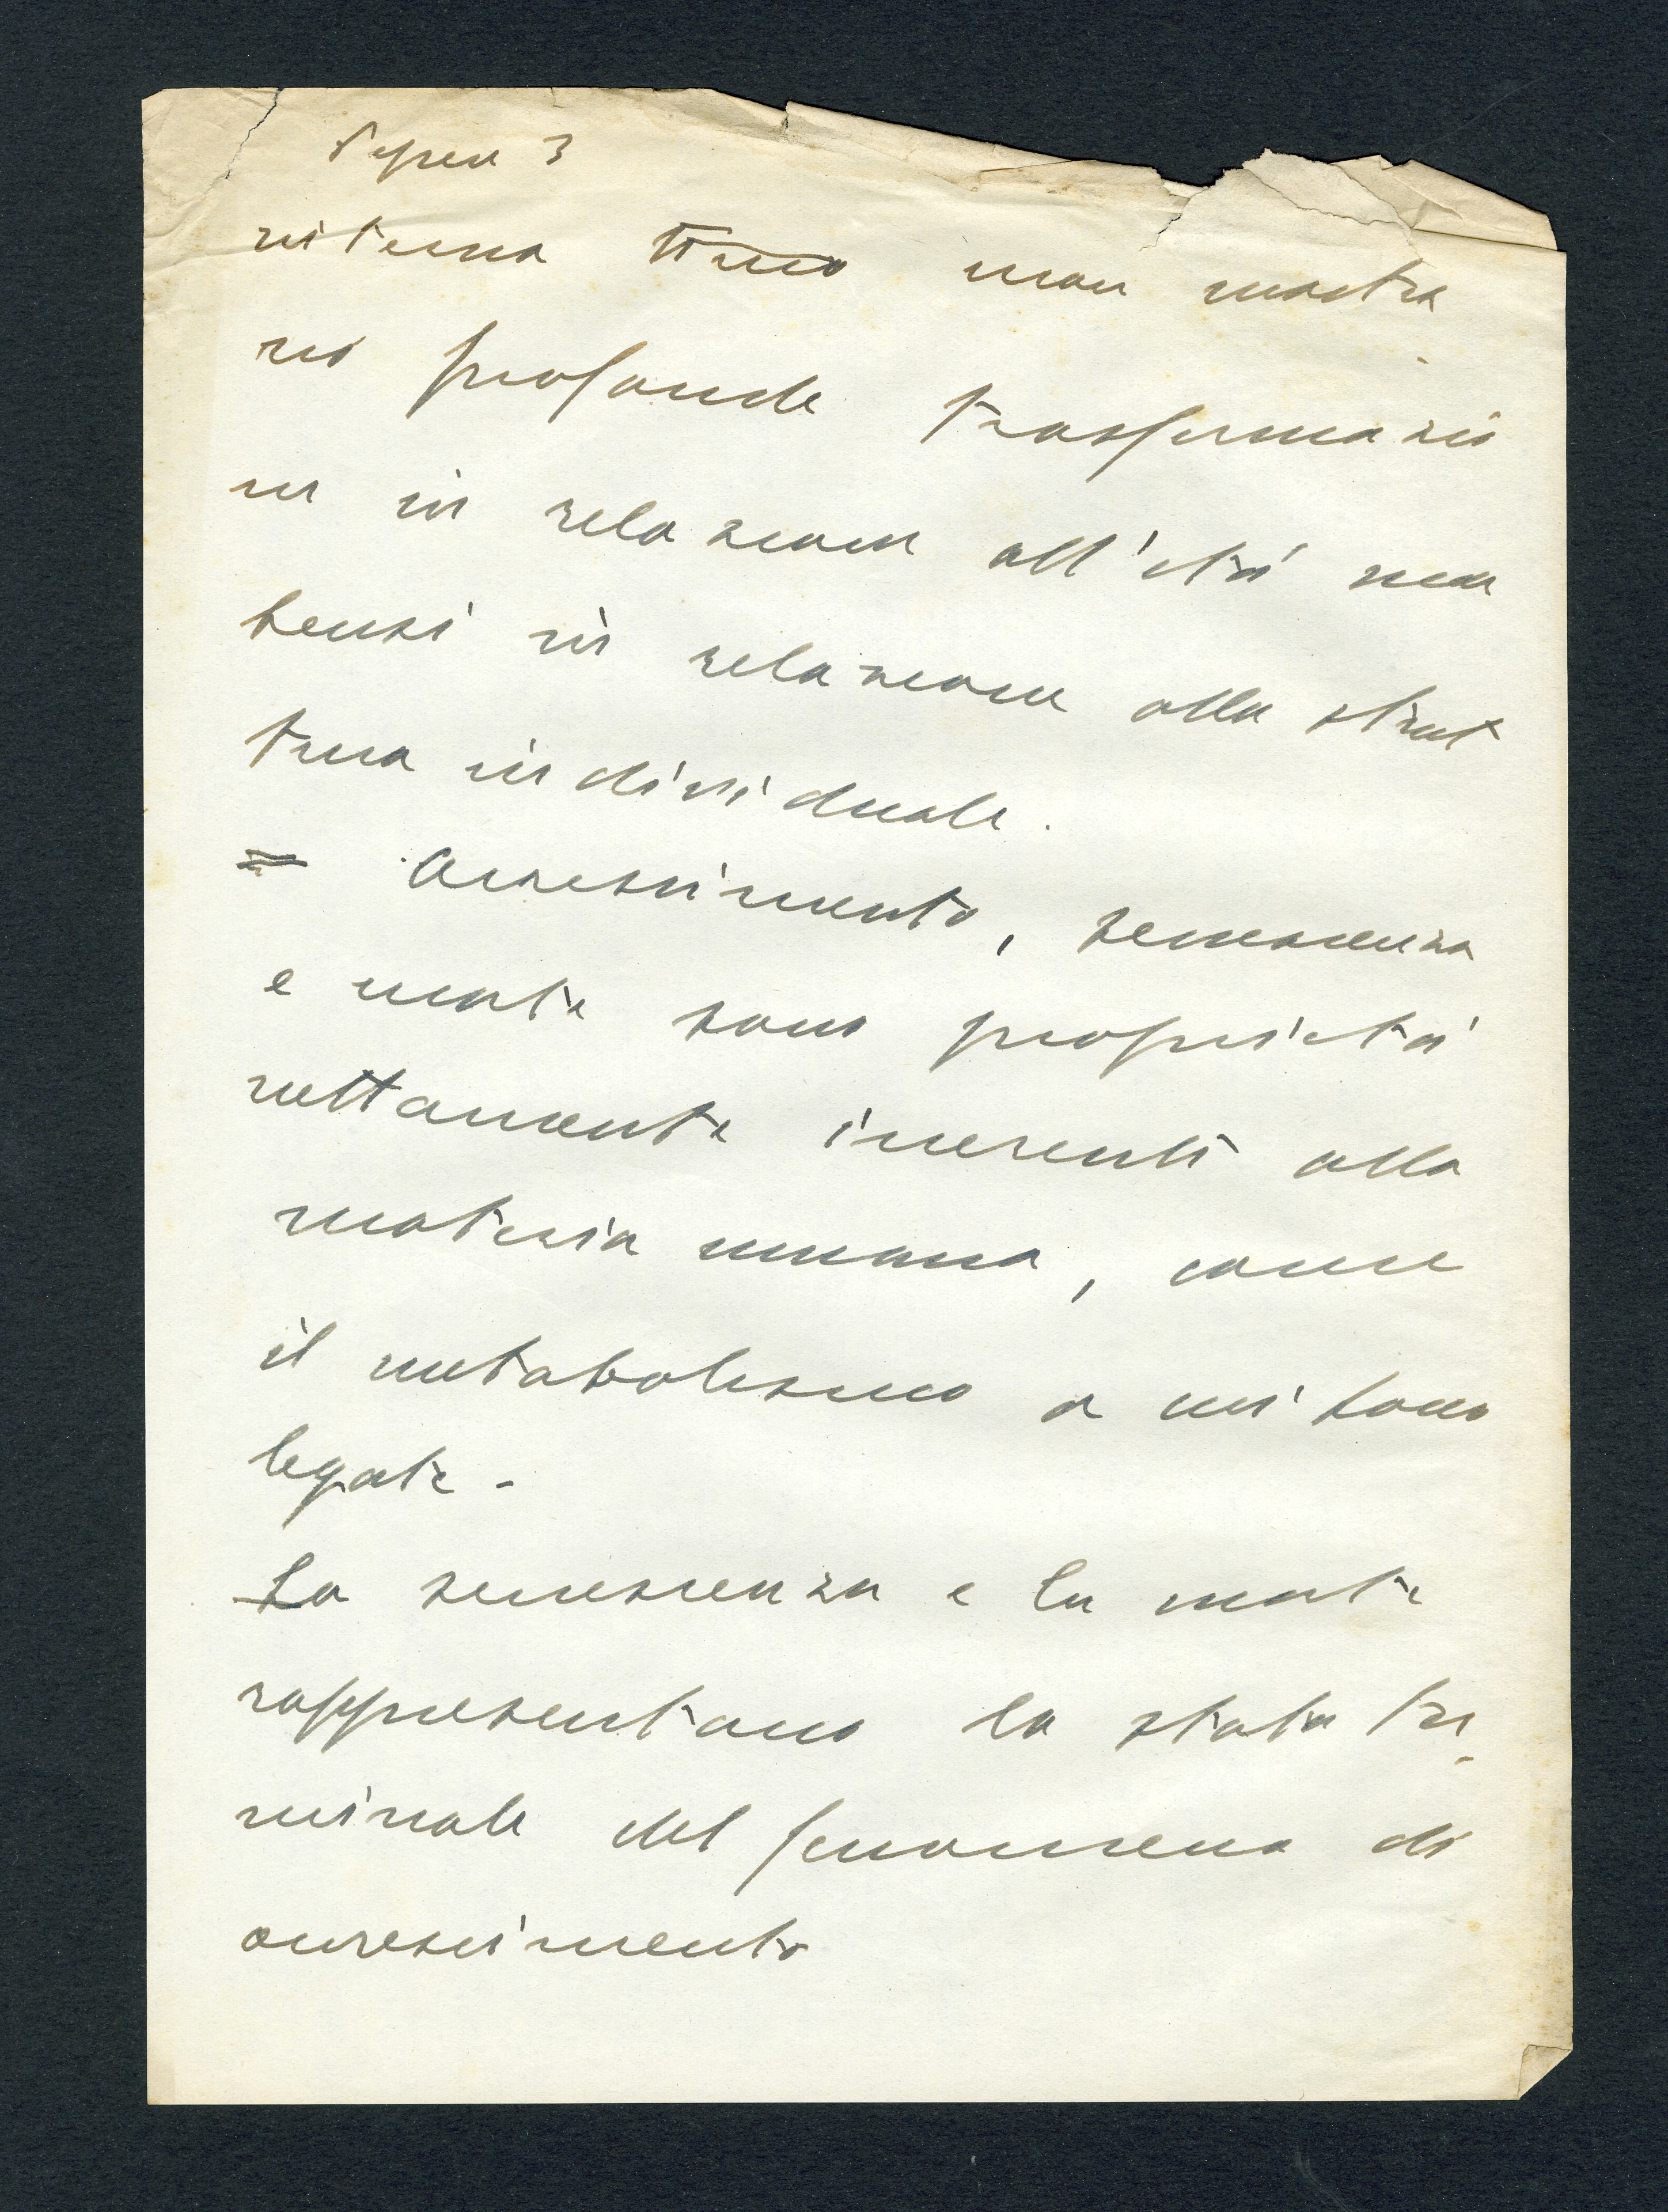 interna non mostra
no profonde trasformazio
ni in relazione all'età ma
bensì in relazione alla strut
tura individuale.
= Accrescimento, senescenza
e morte sono proprietà
nettamente inerenti alla
materia umana, come
il metabolismo a cui sono
legate.
La senescenza e la morte
rappresentano lo stato ter
minale del fenomeno di
accrescimento